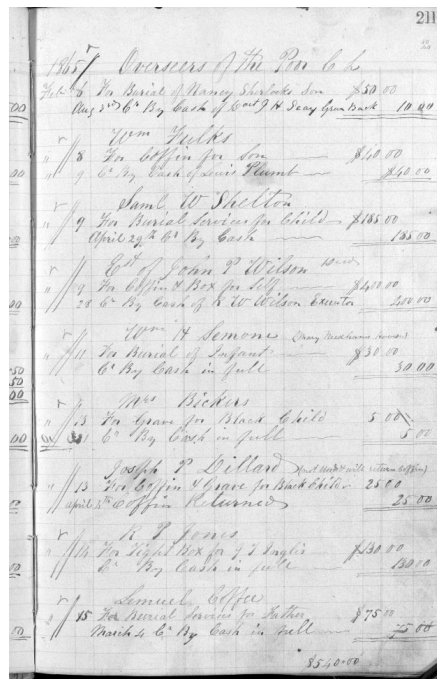 211
1865 Overseers of the Poor C L
Feb 6 For Burial of Nancy Sherlocks Son $50 00
Aug 2nd Cr By Cash of J H Seay Green Back 10 00
Wm Fulks
" 8 For Coffin for Son $40.00
" 9 Cr By Cash of Lewis Plumb $40.00
Saml W Shelton
" 9 For Burial Services for Child $185 00
April 29th Cr By Cash 185 00
Est of John P Wilson
" 9 For Coffin & Box for Self $400 00
" 28 Cr By Cash of R W Wilson Executor 400 00
Wm H Semone
" 11 For Burial of Infant $30 00
Cr By Cash in full 30 00
Mrs Bickers
" 13 For Grave for Black Child 5 00
Cr By Cash in full 5 00
Joseph P Dillard (not used & will return coffin)
" 13 For Coffin & Grave for Black Child 25 00
April 4th Coffin Returned 25 00
R P Jones
" 14 For Tight Box for J T Inglis $130 00
Cr By Cash in full 130 00
Samuel Coffee
" 15 For Burial Services for Father $75 00
March 4 Cr By Cash in full 75 00
$540.00